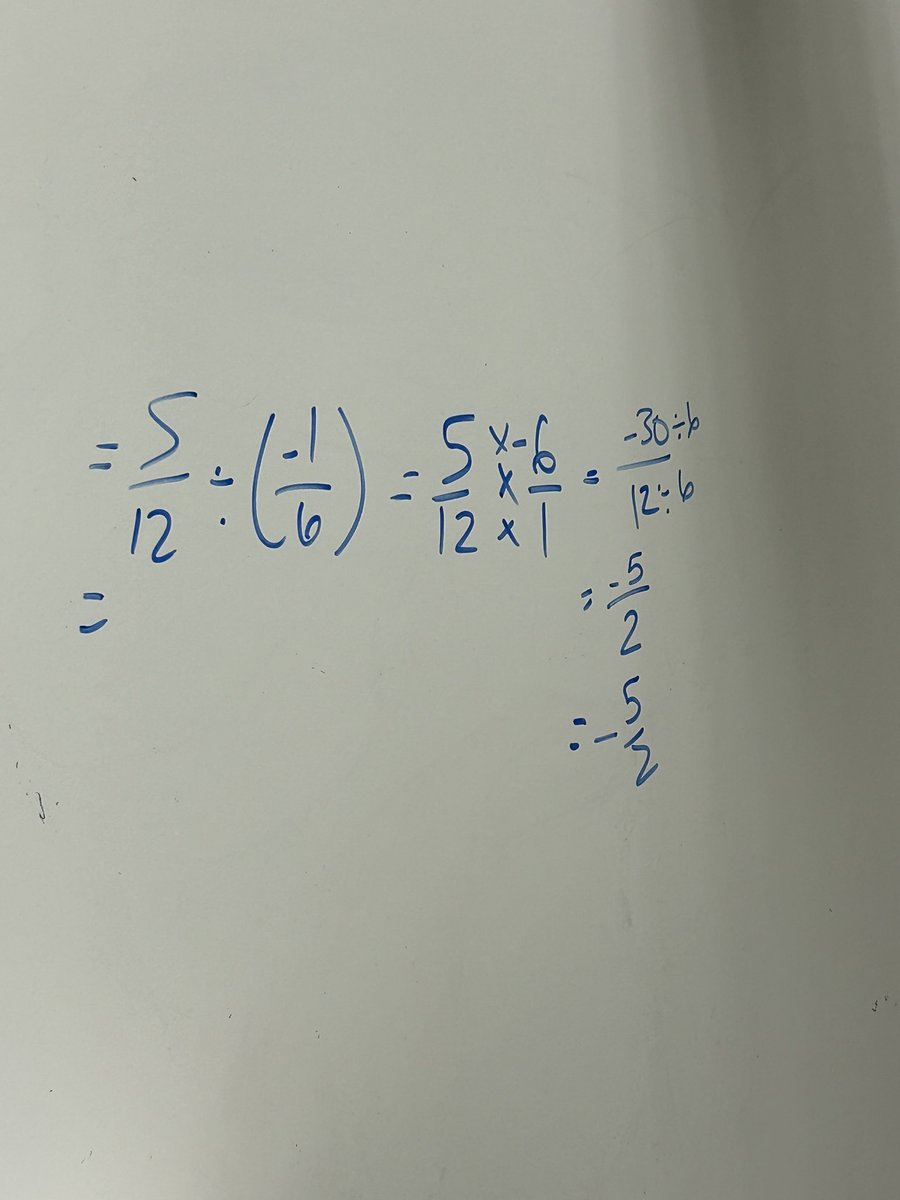 = 5/12 ÷ (-1/6) = 5/12 × × × -6/1 = -30÷6/12÷6
=
= -5/2
= -5/2